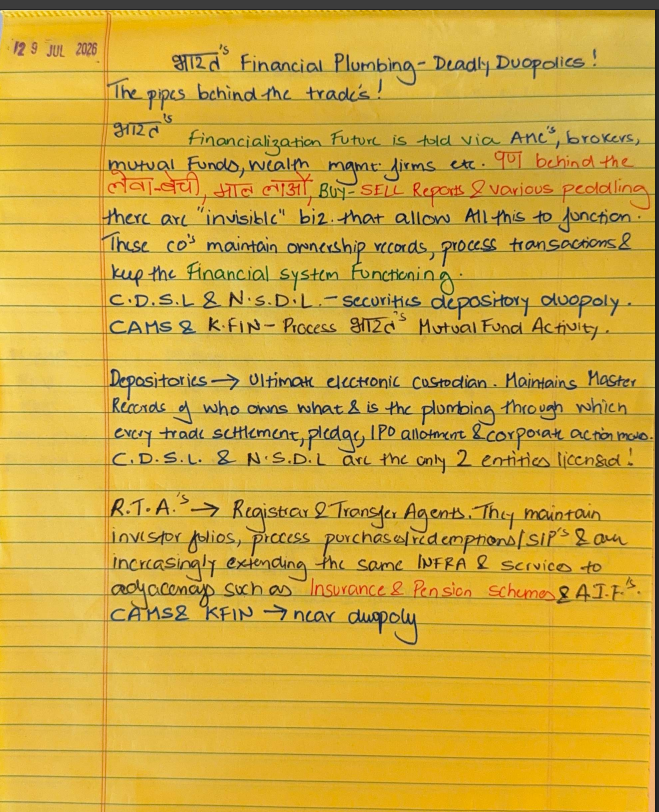 29 JUL 2026
भारत's Financial Plumbing - Deadly Duopolies!
The pipes behind the trade's!
भारत's
Financialization Future is told via AMC's, brokers,
mutual Funds, wealth mgmt firms etc. पण behind the
लेवा-बेची, माल लाओ, BUY-SELL Reports & various peddling
there are "invisible" biz. that allow All this to function.
These co's maintain ownership records, process transactions &
keep the Financial system Functioning.
C.D.S.L & N.S.D.L. - securities depository duopoly.
CAMS & K.FIN - Process भारत's Mutual Fund Activity.
Depositories → Ultimate electronic custodian. Maintains Master
Records of who owns what & is the plumbing through which
every trade settlement, pledge, IPO allotment & corporate action moves.
C.D.S.L. & N.S.D.L are the only 2 entities licensed!
R.T.A.'s → Registrar & Transfer Agents. They maintain
investor folios, process purchases/redemptions/SIP's & are
increasingly extending the same INFRA & services to
adjacencies such as Insurance & Pension schemes & A.I.F.'s.
CAMS & KFIN → near duopoly